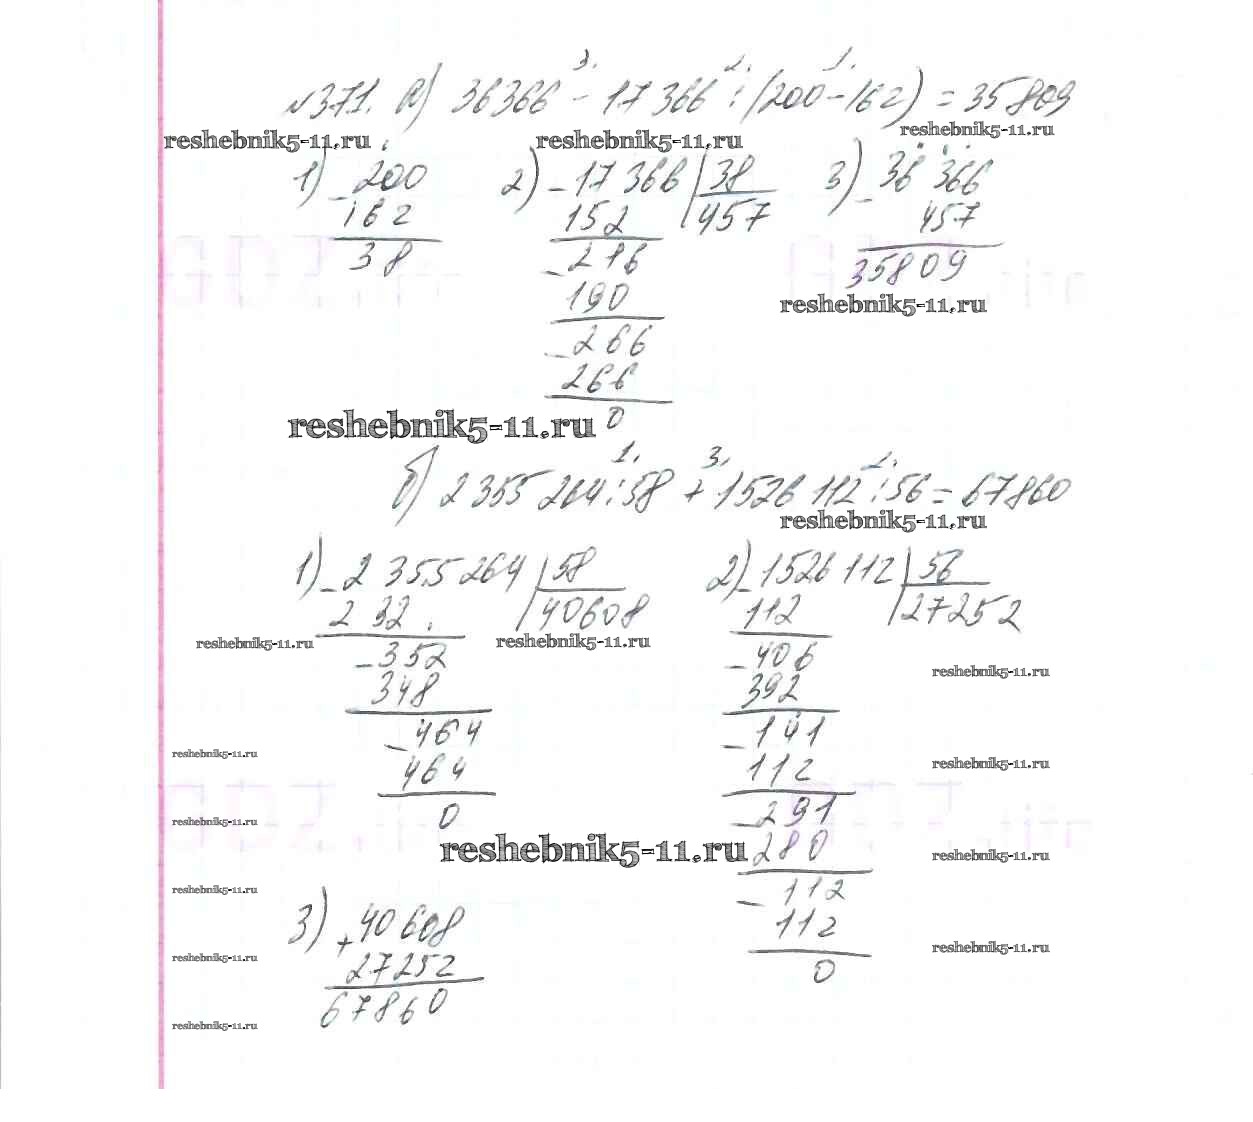 3. 2. 1.
№371. а) 36366 - 17366 : (200-162) = 35809
reshebnik5-11.ru reshebnik5-11.ru reshebnik5-11.ru
1) - 200 2) - 17366 | 38 3) - 36366
162 152 | 457 457
38 - 216 35809
190 reshebnik5-11.ru
- 266
266
reshebnik5-11.ru 0
1. 3. 2.
б) 2355264 : 58 + 1526112 : 56 = 67860
reshebnik5-11.ru
1) - 2355264 | 58 2) - 1526112 | 56
232 | 40608 112 | 27252
reshebnik5-11.ru reshebnik5-11.ru
- 352 - 406
reshebnik5-11.ru
348 392
- 464 - 141
reshebnik5-11.ru reshebnik5-11.ru
464 112
0 - 291
reshebnik5-11.ru
reshebnik5-11.ru 280 reshebnik5-11.ru
reshebnik5-11.ru - 112
3) + 40608 112
reshebnik5-11.ru
reshebnik5-11.ru 27252 0
67860
reshebnik5-11.ru